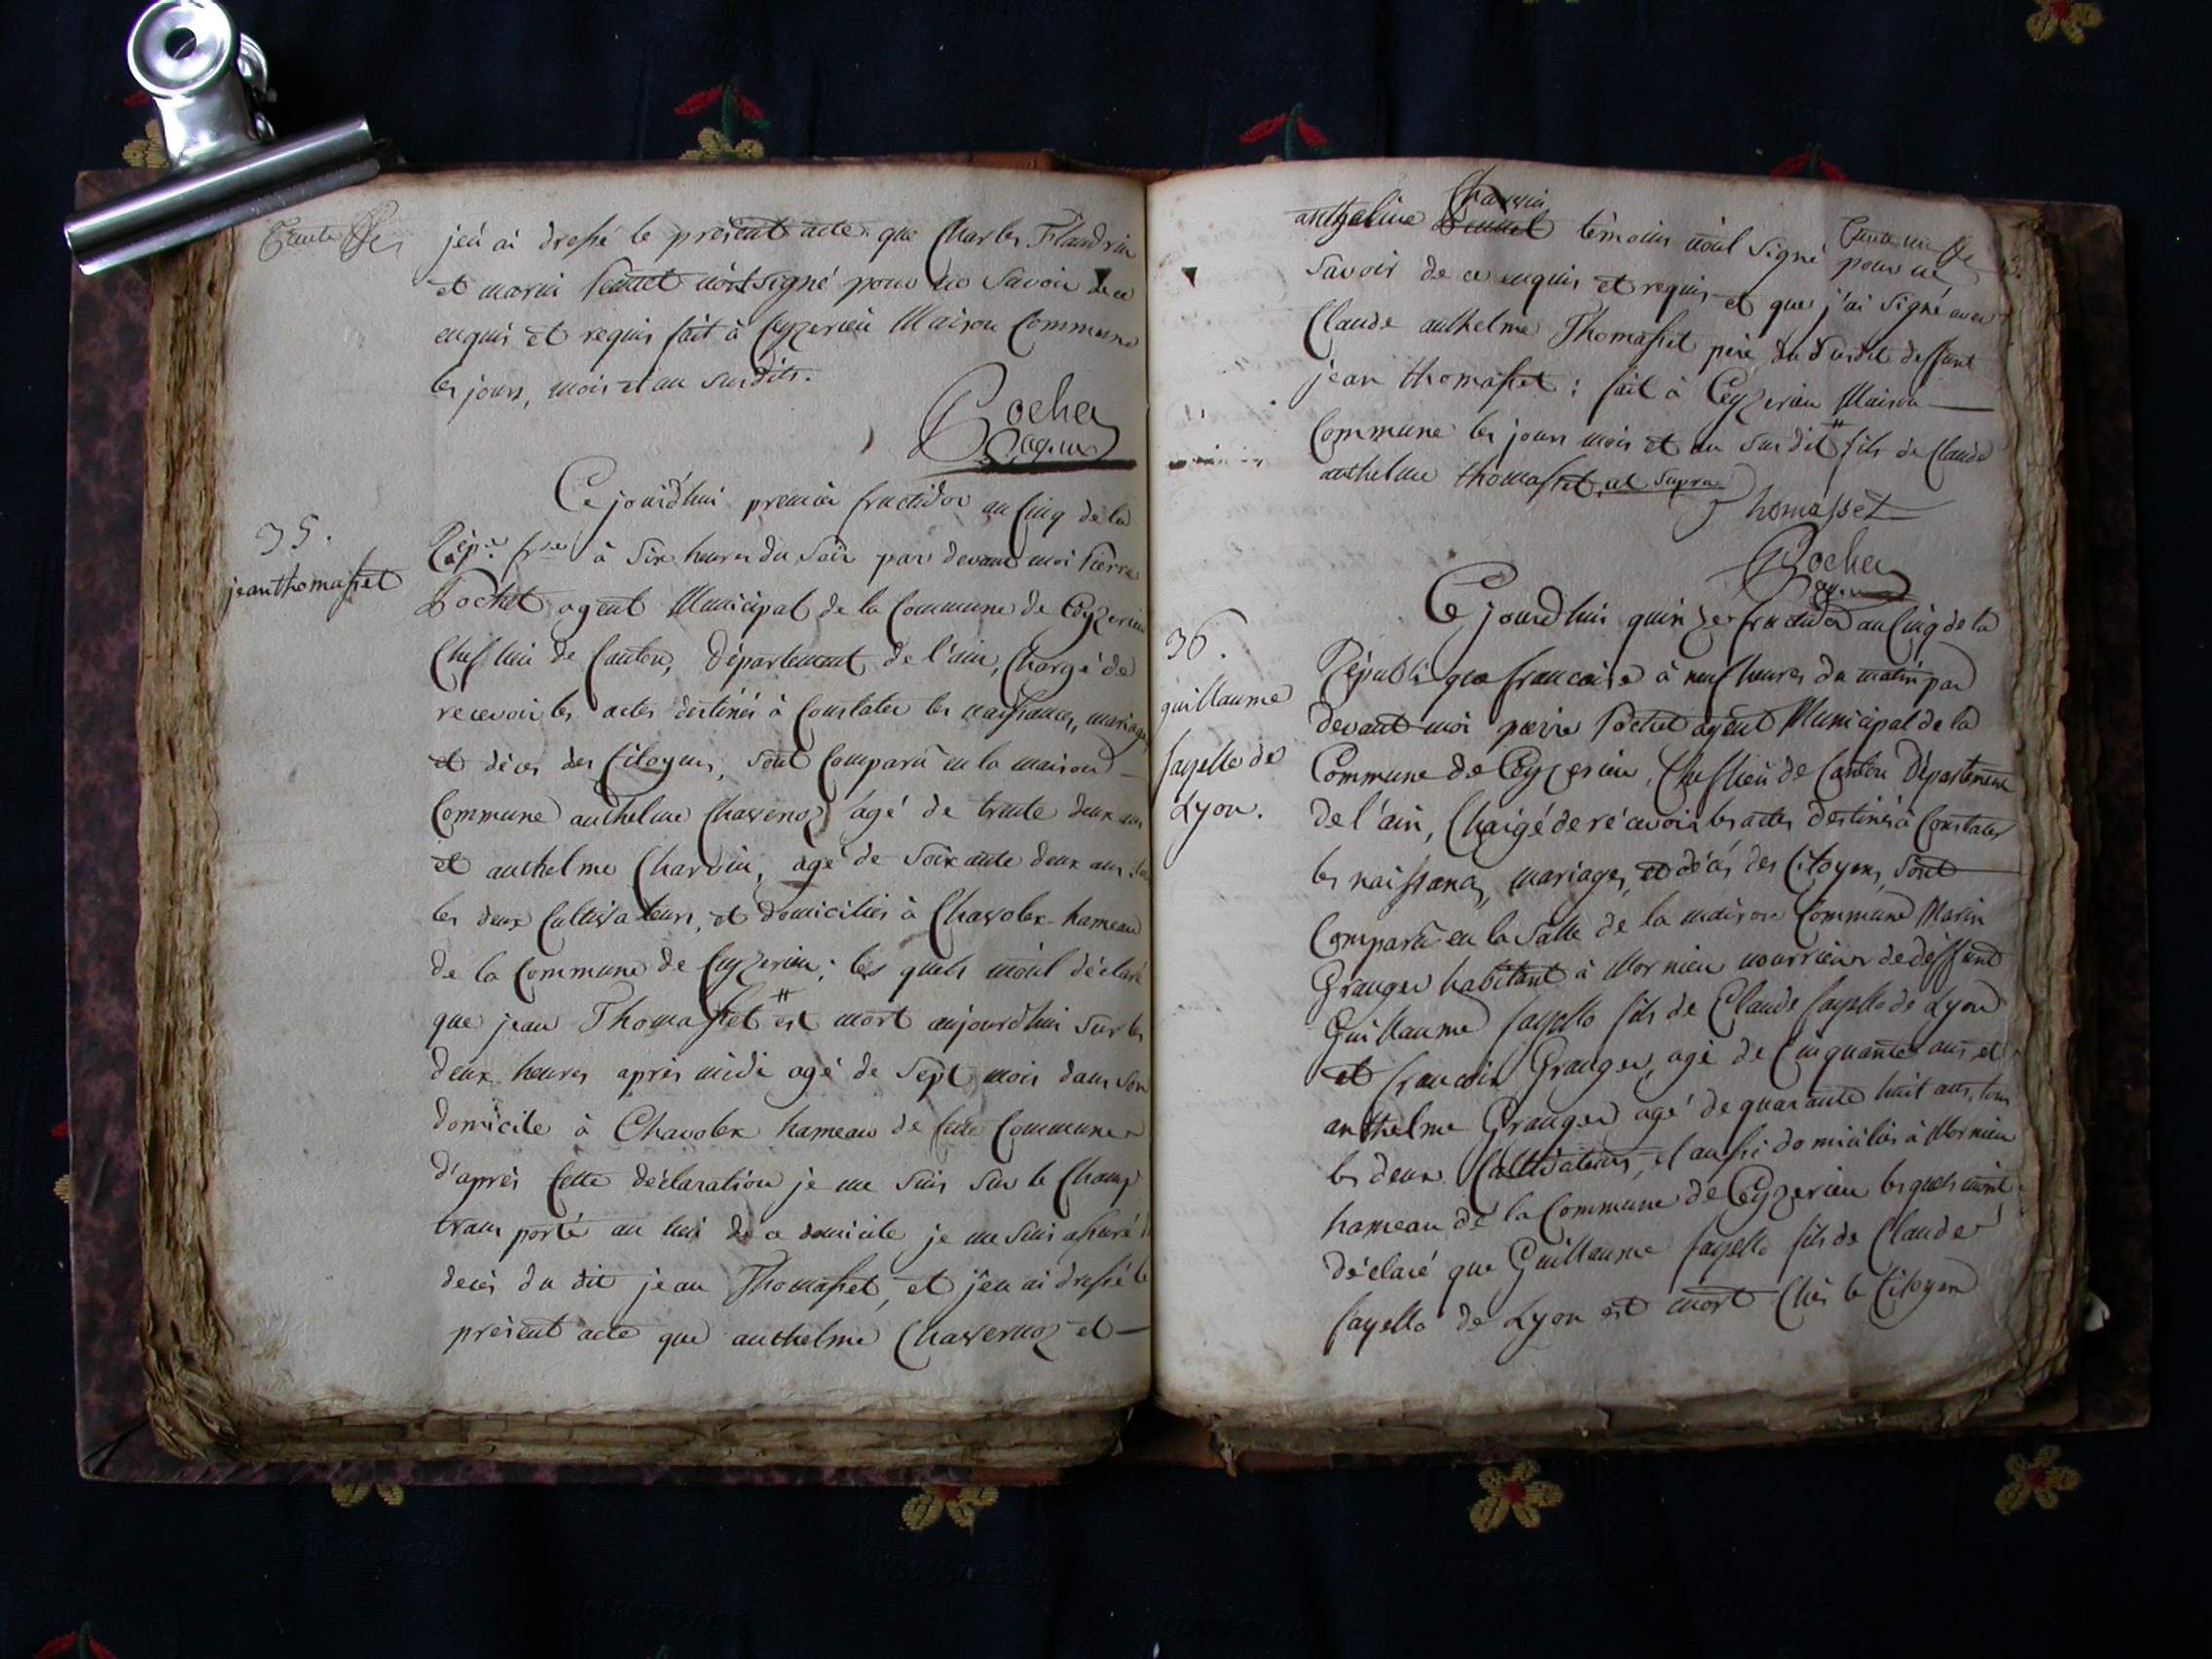 Trente
j'en ai dressé le présent acte que Charles Flandrin
et marin pennet n'ont signé pour ne savoir de ce
enquis et requis fait à Ceyzerieu Maison Commune
les jours, mois et an susdits.
Pochet
ag. m.
35.
jean thomasset
Ce jourd'hui premier fructidor an cinq de la
Rép.e fr.se à six heures du soir par devant moi Pierre
Pochet agent Municipal de la Commune de Ceyzerieu
Chef lieu de Canton, Département de l'ain, Chargé de
recevoir les actes destinés à Constater les naissances, mariages
et décès des Citoyens, sont Comparû en la maison
Commune anthelme Chavenoz agé de trente deux ans
et anthelme Charvin, agé de soixante deux ans
les deux Cultivateurs, et domiciliés à Chavolex hameau
de la Commune de Ceyzerieu; les quels m'ont déclaré
que jean Thomasset # est mort aujourd'hui sur les
deux heures après midi agé de Sept mois dans son
domicile à Chavolex hameau de cette Commune
d'après Cette déclaration je me suis sur le Champ
transporté au lieu de ce domicile je me suis assuré
decès du dit jean Thomasset, et j'en ai dressé le
présent acte que anthelme Chavenoz et
Trente un
Charvin
anthelme pennet témoins n'ont signé pour ne
savoir de ce enquis et requis et que j'ai signé avec
Claude anthelme Thomasset père du susdit deffunt
jean thomasset; fait à Ceyzerieu Maison
Commune les jours mois et an susdit # fils de Claude
anthelme thomasset, ut supra
Thomasset
Pochet
ag. m.
36.
guillaume
fayelle de
Lyon.
Ce jourd'hui quinze fructidor an Cinq de la
République francaise à neuf heures du matin par
devant moi pierre Pochet agent Municipal de la
Commune de Ceyzerieu, Chef lieu de Canton Département
de l'ain, Chargé de récevoir les actes destinés à Constater
les naissances, mariages, et décès des Citoyens, sont
Comparû en la salle de la maison Commune Marin
Granger habitant à Mornieu nourricier de deffunt
Guillaume fayelle fils de Claude fayelle de Lyon
et francois Granger, agé de Cinquante ans et
anthelme Granger agé de quarante huit ans, tous
les deux Cultivateurs, et aussi domiciliés à Mornieu
hameau de la Commune de Ceyzerieu lesquels m'ont
déclaré que Guillaume fayelle fils de Claude
fayelle de Lyon est mort Chés le Citoyen